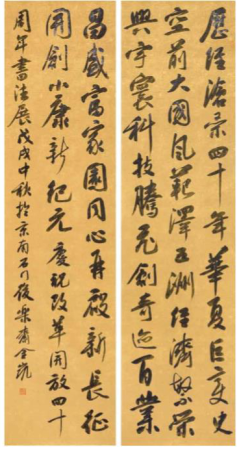 历经沧桑四十年华夏巨变史
空前大国风范泽五洲经济繁荣
兴宇寰科技腾飞创奇迹百业
昌盛富家园同心再启新长征
开创小康新纪元庆祝改革开放四十
周年书法展戊戌中秋于京南石门后乐斋金觊